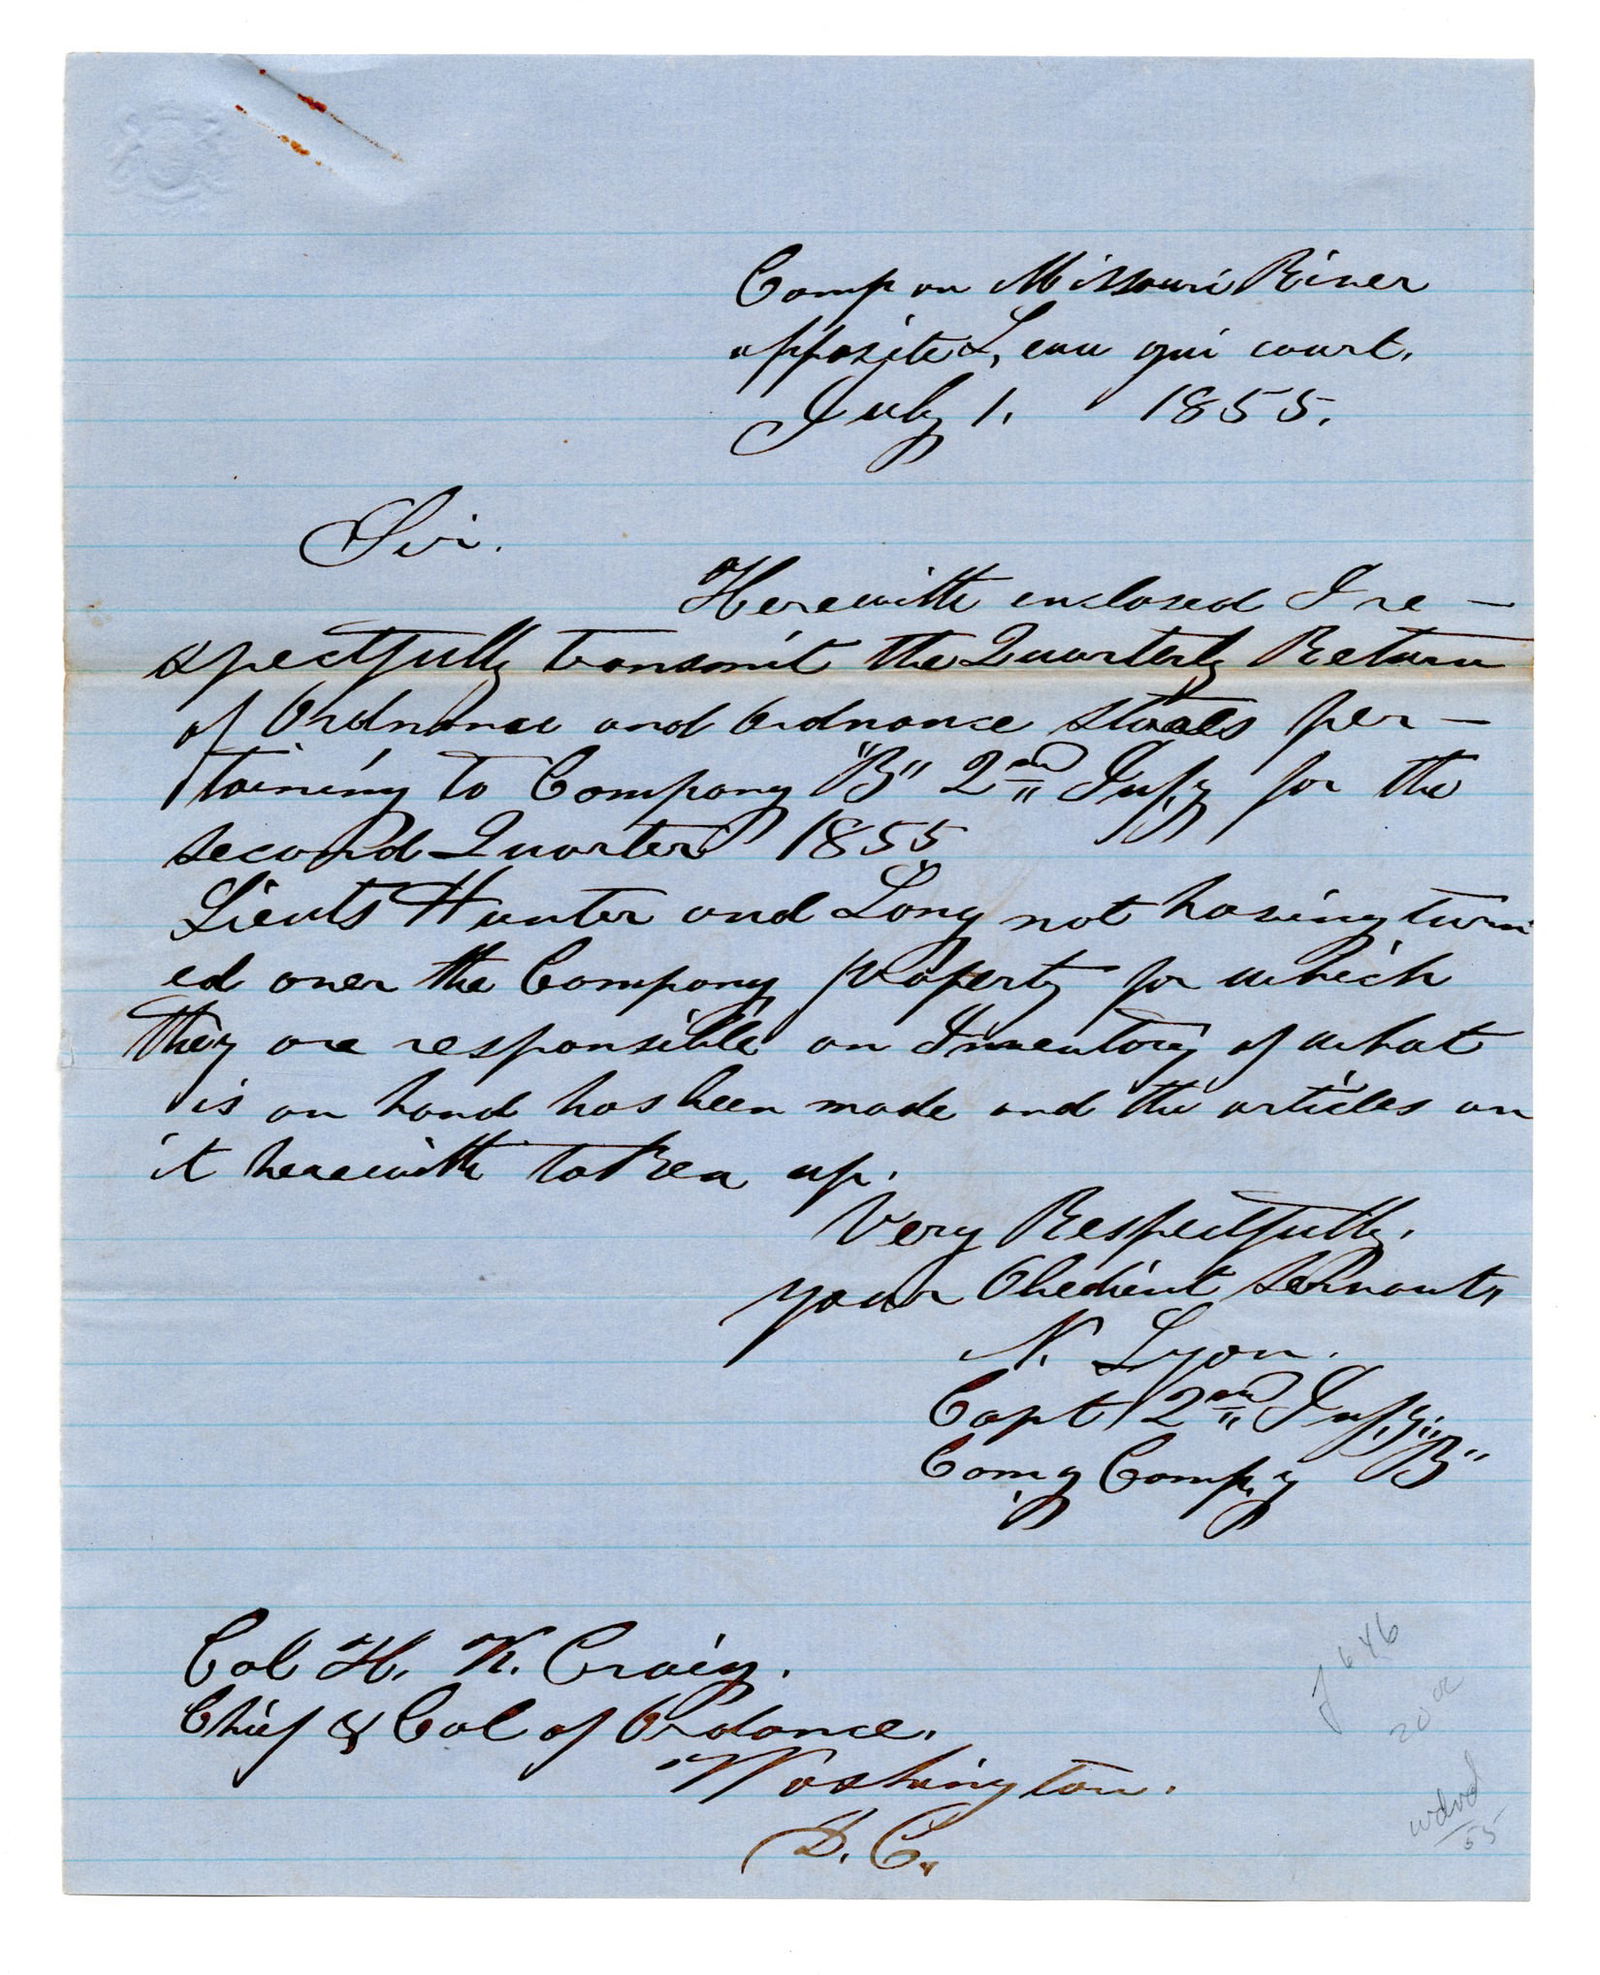 Camp on Missouri River
opposite L, eau qui court.
July 1. 1855.
Sir.
Herewith enclosed I re-
spectfully transmit the Quarterly Return
of Ordnance and Ordnance stores per-
taining to Company "B" 2nd Infy for the
second Quarter 1855
Lieuts Hunter and Long not having turn
ed over the Company property for which
they are responsible an Inventory of what
is on hand has been made and the articles on
it herewith taken up.
Very Respectfully.
your Obedient Servant,
N. Lyon.
Capt 2nd Infy
Comg Compy "B"
Col H. K. Craig.
Chief & Col of Ordance.
Washington.
D. C.
646
20
55